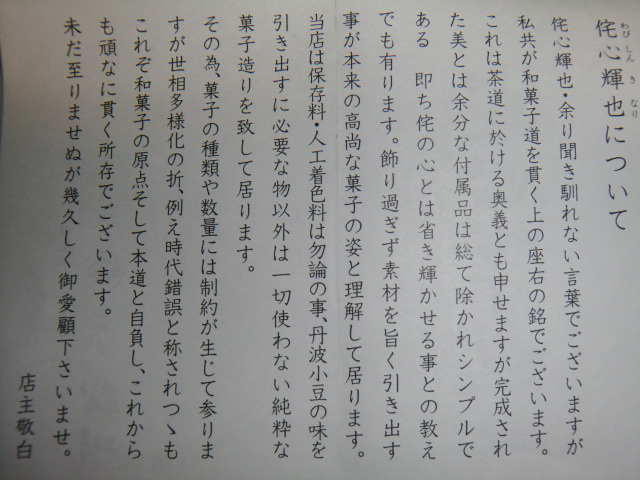 侘心輝也について
わびしんきなり
侘心輝也・余り聞き馴れない言葉でございますが
私共が和菓子道を貫く上の座右の銘でございます。
これは茶道に於ける奥義とも申せますが完成され
た美とは余分な付属品は総て除かれシンプルで
ある　即ち侘の心とは省き輝かせる事との教え
でも有ります。飾り過ぎず素材を旨く引き出す
事が本来の高尚な菓子の姿と理解して居ります。
当店は保存料・人工着色料は勿論の事、丹波小豆の味を
引き出すに必要な物以外は一切使わない純粋な
菓子造りを致して居ります。
その為、菓子の種類や数量には制約が生じて参りま
すが世相多様化の折、例え時代錯誤と称されつゝも
これぞ和菓子の原点そして本道と自負し、これから
も頑なに貫く所存でございます。
未だ至りませぬが幾久しく御愛顧下さいませ。
店主敬白